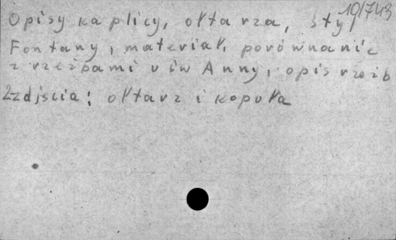 10/743
Opisy kaplicy, ołtarza, styl
Fontany, materiał, porównanie
z rzeźbami u św Anny, opis rzeźb
2 zdjęcia: ołtarz i kopuła